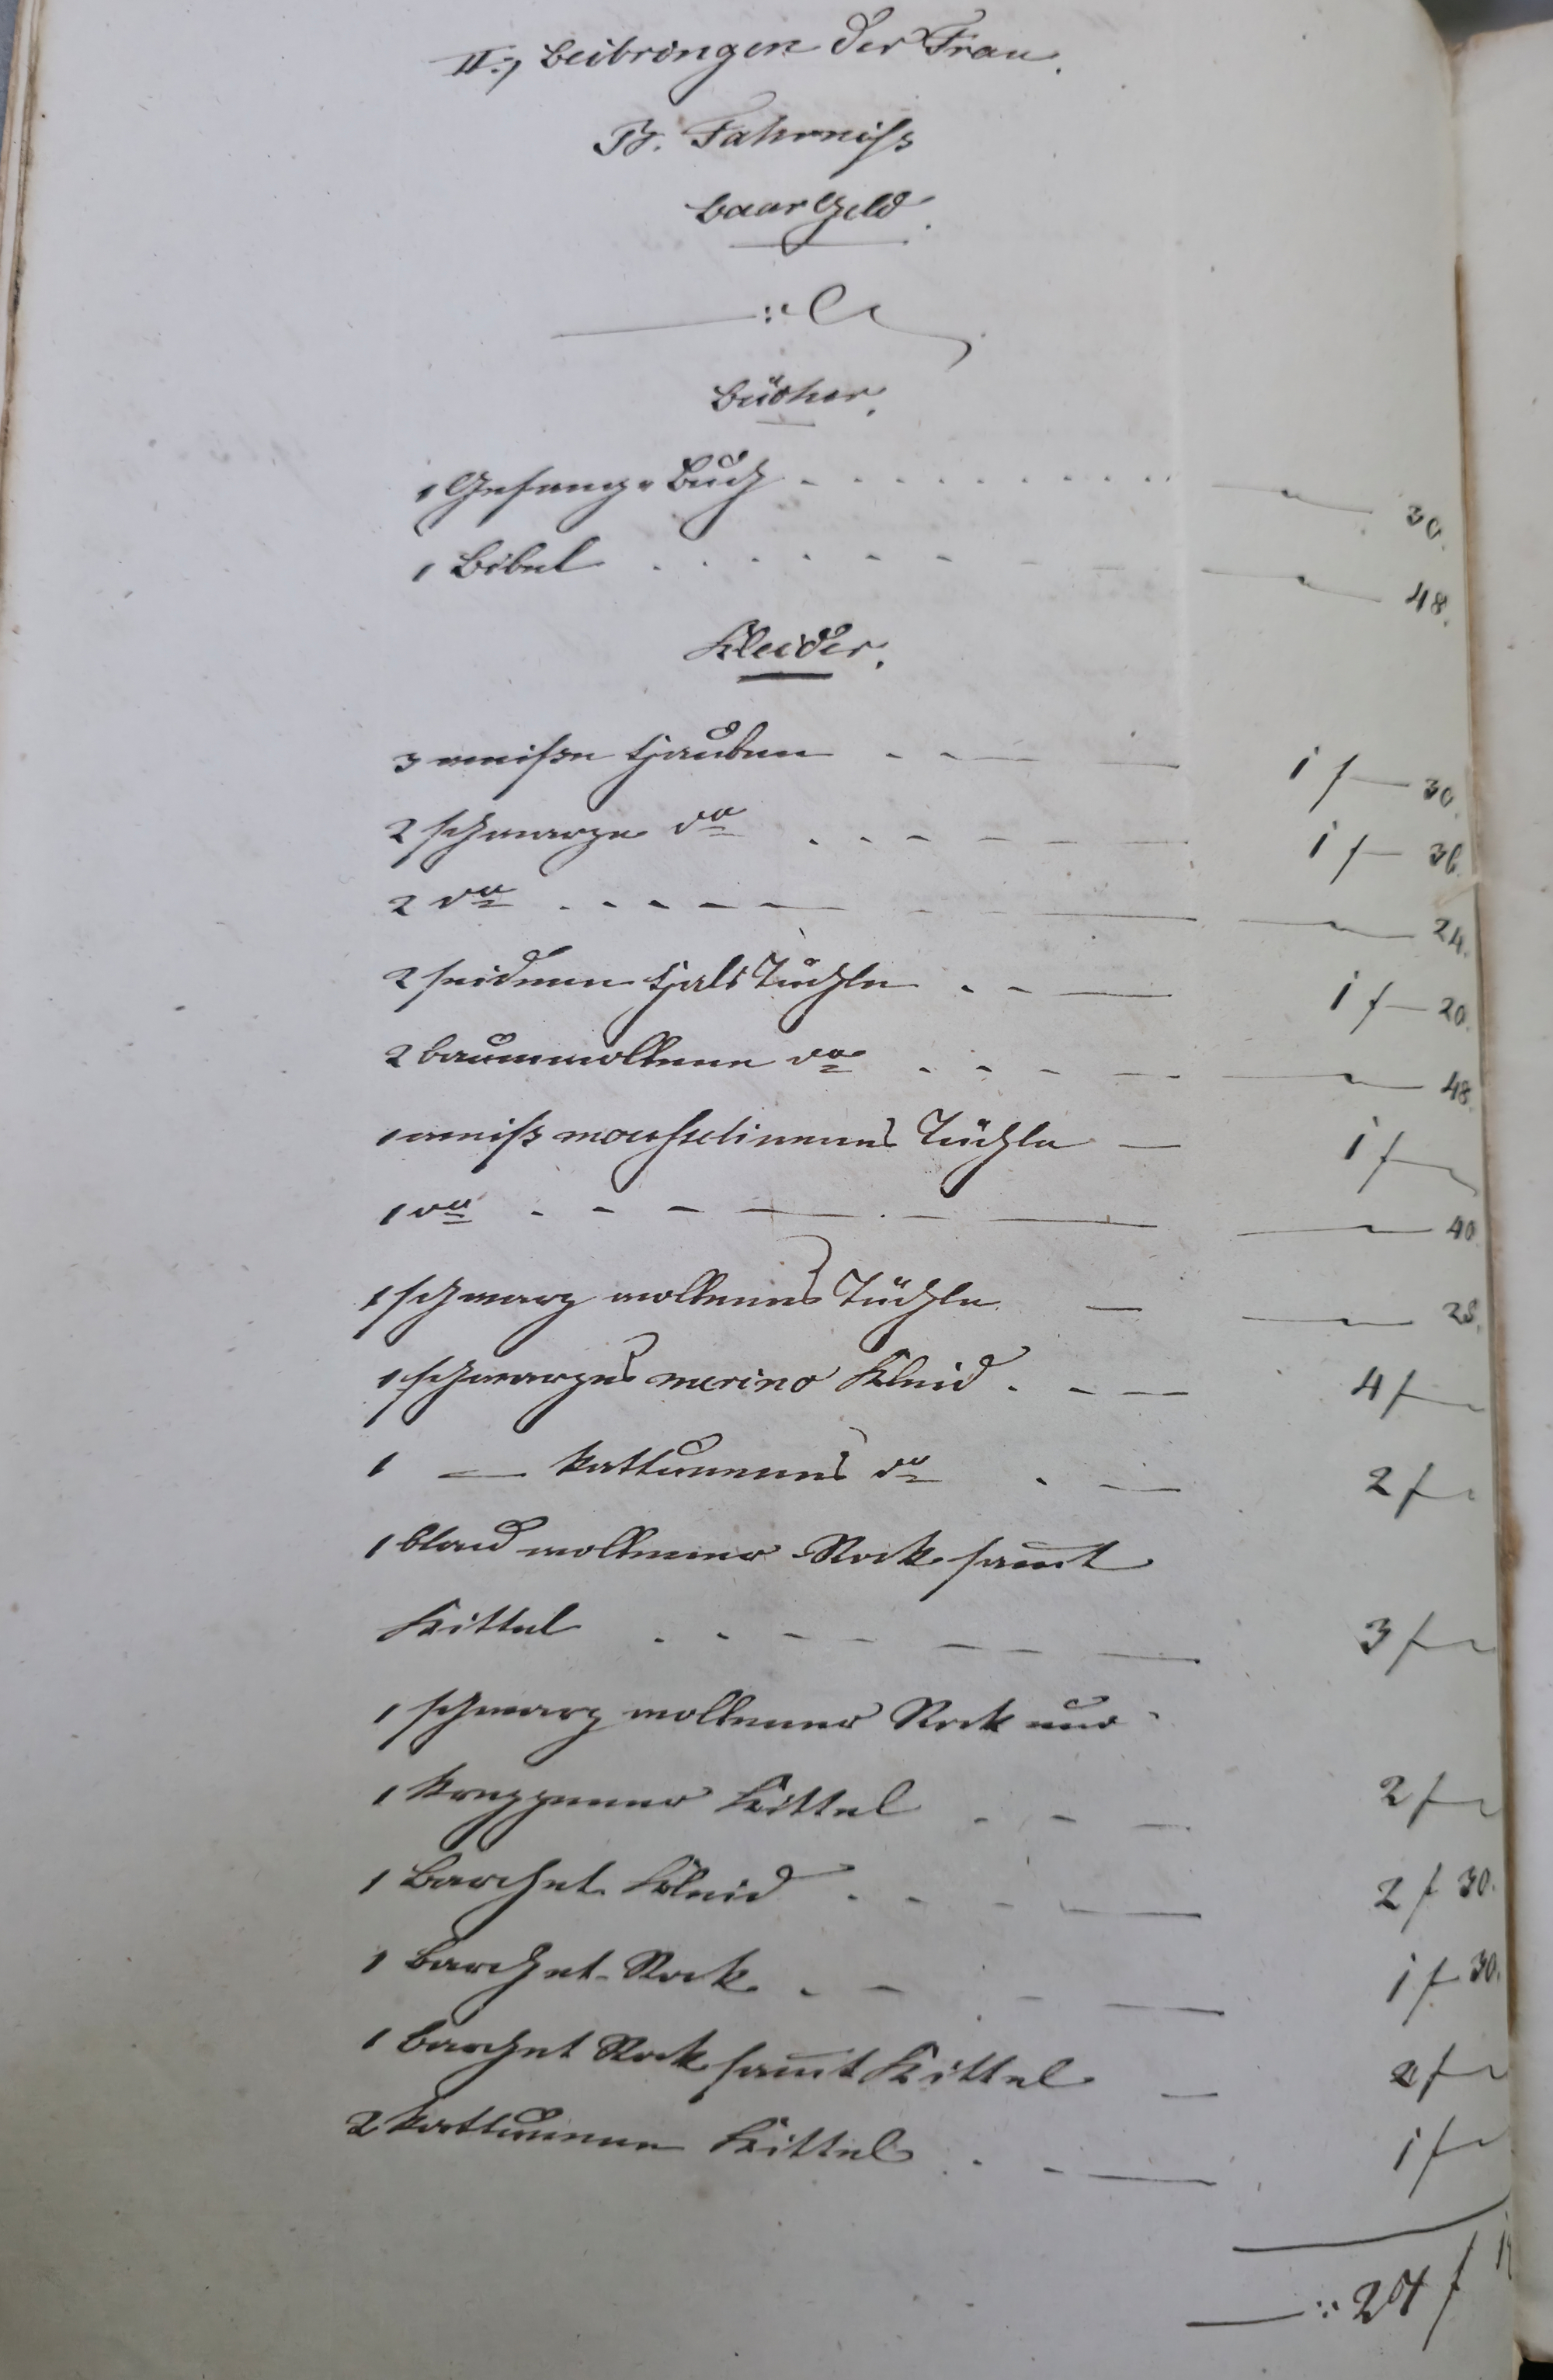 II., Beibringen der Frau.
B. Fahrniß
Baar Geld.
—:
Bücher.
1 Gesang-Buch . . . . . . . . . . — 30.
1 Bibel . . . . . . . . — 48.
Kleider.
3 weiße Hauben . . — — 1 f — 30.
2 schwarze do . . . — — — 1 f — 36.
2 do . . . — — — — 24.
2 seidene Hals Tüchle . . — 1 f — 20.
2 baumwollene do . . . — — 48.
1 weiß mousselinenes Tüchle — 1 f —
1 do . . . — — — — 40.
1 schwarz wollenes Tüchle — — 28.
1 schwarzes merino Kleid . . — 4 f —
1 — kattunenes do . — 2 f —
1 blau wollener Rock samt
Kittel . . . . — — — 3 f —
1 schwarz wollener Rock und
1 kreppener Kittel . . — 2 f —
1 Barchet Kleid . . . — 2 f 30.
1 Barchet-Rock . . . — 1 f 30.
1 Barchet Rock samt Kittel — 2 f —
2 kattunene Kittel . . — 1 f —
—: 27 f